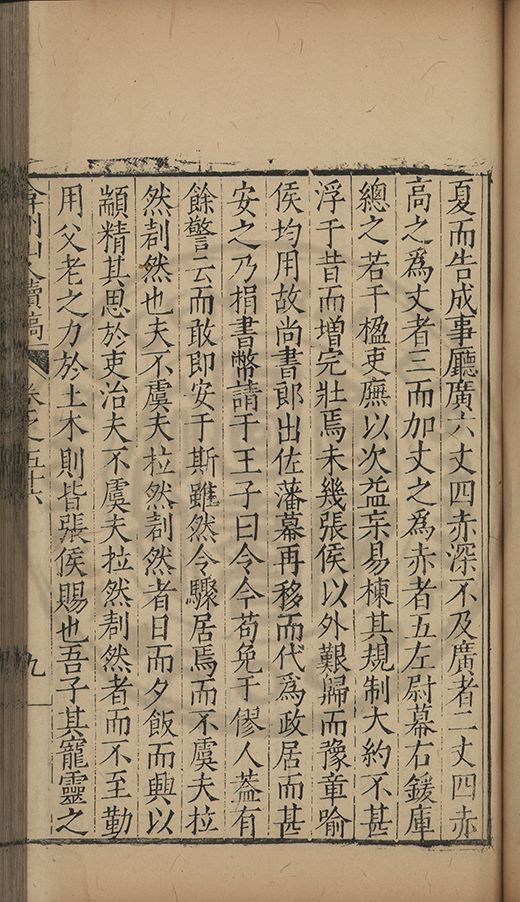 夏而告成事廳廣六丈四赤深不及廣者二丈四赤
高之爲丈者三而加丈之爲赤者五左尉幕右鍰庫
總之若干楹吏廡以次益杗易棟其規制大約不甚
浮于昔而增完壯焉未幾張侯以外艱歸而豫章喻
侯均用故尚書郎出佐藩幕再移而代爲政居而甚
安之乃捐書幣請于王子曰令今苟免于僇人蓋有
餘警云而敢即安于斯雖然令驟居焉而不虞夫拉
然剨然也夫不虞夫拉然剨然者日而夕飯而興以
顓精其思於吏治夫不虞夫拉然剨然者而不至勤
用父老之力於土木則皆張侯賜也吾子其寵靈之
弇州山人續稿 卷之五十六 九